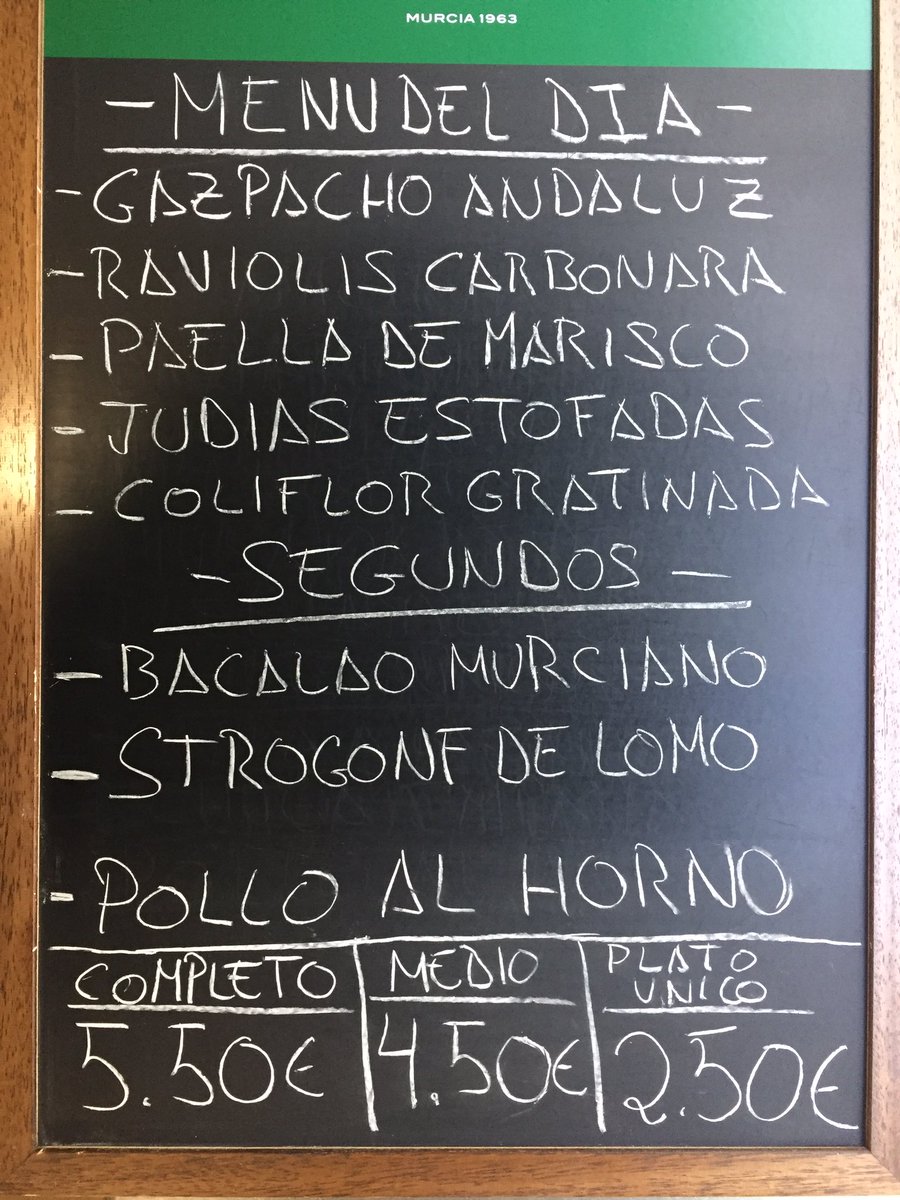 MURCIA 1963
- MENU DEL DIA -
- GAZPACHO ANDALUZ
- RAVIOLIS CARBONARA
- PAELLA DE MARISCO
- JUDIAS ESTOFADAS
- COLIFLOR GRATINADA
- SEGUNDOS -
- BACALAO MURCIANO
- STROGONF DE LOMO
- POLLO AL HORNO
COMPLETO
5.50€
MEDIO
4.50€
PLATO
UNICO
2.50€